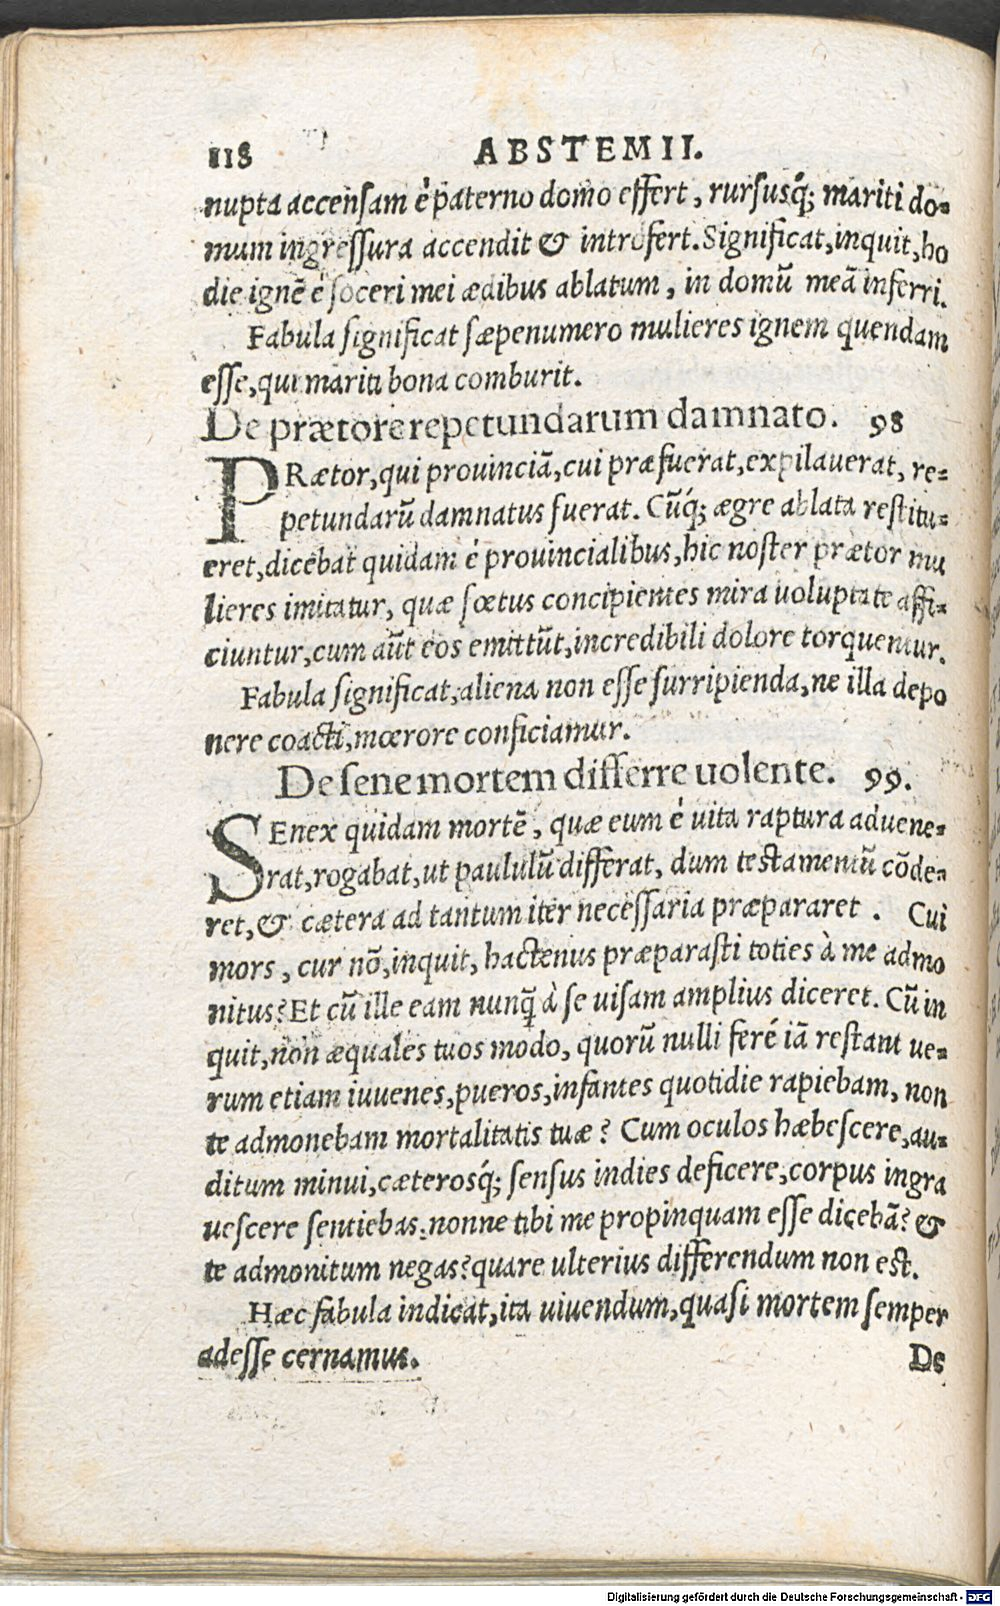 118 ABSTEMII.
nupta accensam è paterno domo effert, rursusq́; mariti do-
mum ingressura accendit & introfert. Significat, inquit, ho
die ignē è soceri mei ædibus ablatum, in domū meā inferri.
Fabula significat sæpenumero mulieres ignem quendam
esse, qui mariti bona comburit.
De prætore repetundarum damnato. 98
PRætor, qui prouinciā, cui præfuerat, expilauerat, re-
petundarū damnatus fuerat. Cūq́; ægre ablata restitu-
eret, dicebat quidam è prouincialibus, hic noster prætor mu
lieres imitatur, quæ fœtus concipientes mira uoluptate affi-
ciuntur, cum aūt eos emittūt, incredibili dolore torquentur.
Fabula significat, aliena non esse surripienda, ne illa depo
nere coacti, mœrore conficiamur.
De sene mortem differre uolente. 99.
SEnex quidam mortē, quæ eum è uita raptura aduene-
rat, rogabat, ut paululū differat, dum testamentū cōde-
ret, & cætera ad tantum iter necessaria præpararet. Cui
mors, cur nō, inquit, hactenus præparasti toties à me admo
nitus? Et cū ille eam nunq̄ à se uisam amplius diceret. Cū in
quit, non æquales tuos modo, quorū nulli feré iā restant ue-
rum etiam iuuenes, pueros, infantes quotidie rapiebam, non
te admonebam mortalitatis tuæ? Cum oculos hæbescere, au-
ditum minui, cæterosq́; sensus indies deficere, corpus ingra
uescere sentiebas, nonne tibi me propinquam esse dicebā? &
te admonitum negas? quare ulterius differendum non est.
Hæc fabula indicat, ita uiuendum, quasi mortem semper
adesse cernamus.
De
Digitalisierung gefördert durch die Deutsche Forschungsgemeinschaft - DFG